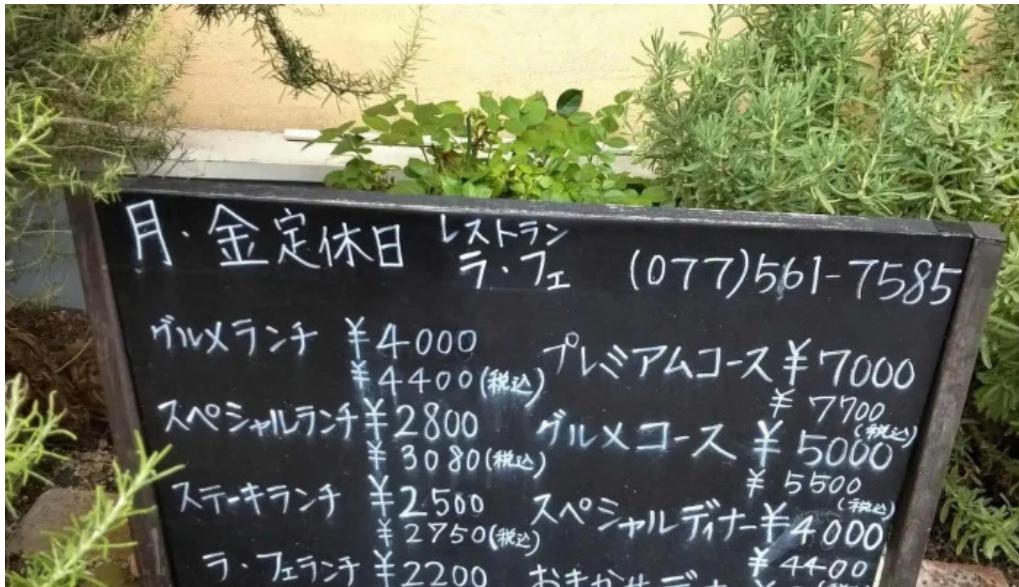 月・金定休日 レストラン
ラ・フェ (077)561-7585
グルメランチ ¥4000
¥4400(税込)
スペシャルランチ ¥2800
¥3080(税込)
ステーキランチ ¥2500
¥2750(税込)
ラ・フェランチ ¥2200
プレミアムコース ¥7000
¥7700
(税込)
グルメコース ¥5000
¥5500
(税込)
スペシャルディナー ¥4000
¥4400
おまかせディナー